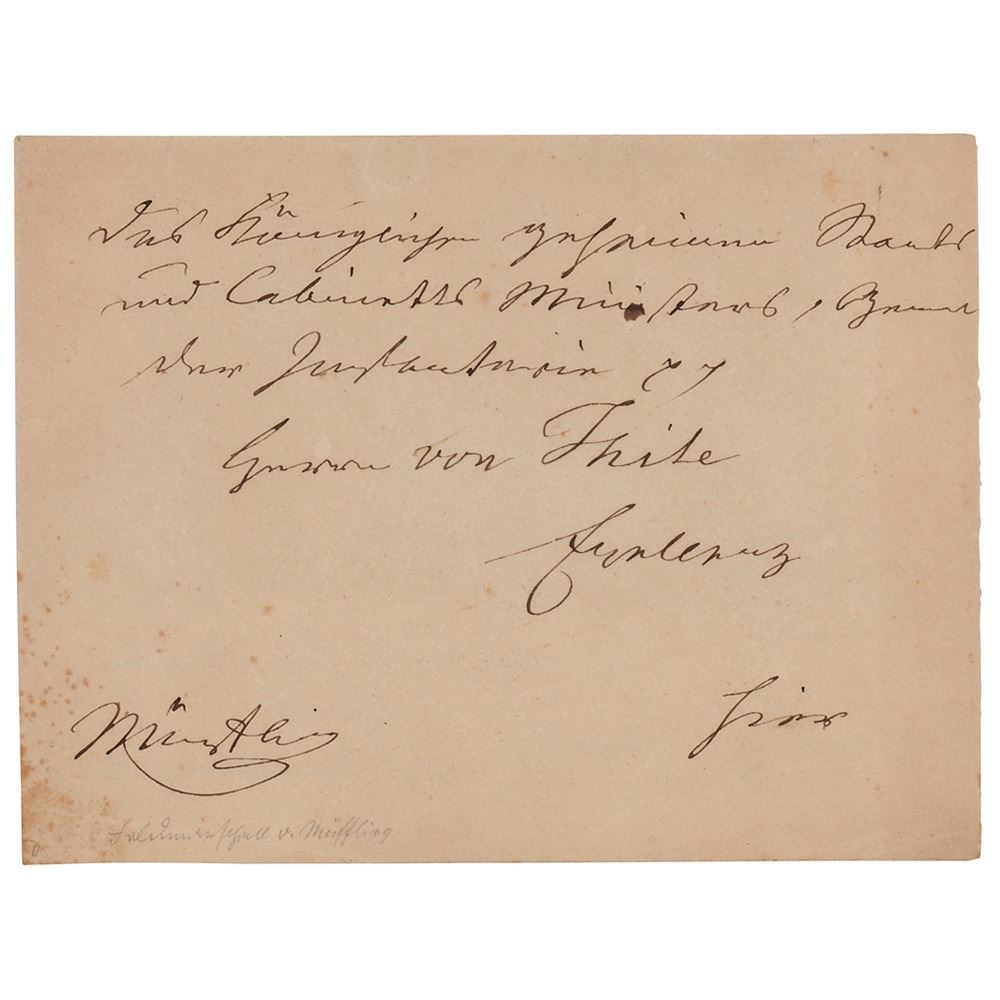 Des Königlichen geheimen Staats
und Cabinetts Ministers, General
der Infanterie pp
Herrn von Thile
Excellenz
hier
Müffling
Feldmarschall v. Müffling